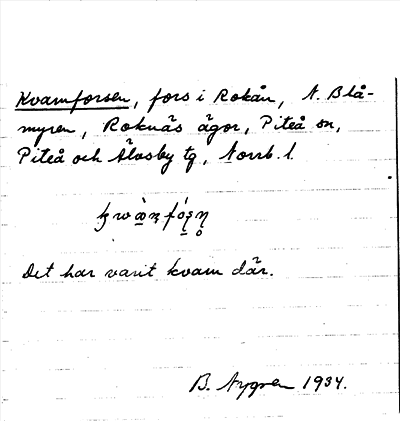 Kvarnforsen, fors i Rokån, N. Blå-
myren, Roknäs ägor, Piteå sn,
Piteå och Älvsby tg, Norrb. l.
Det har varit kvarn där.
B. Nygren 1934.